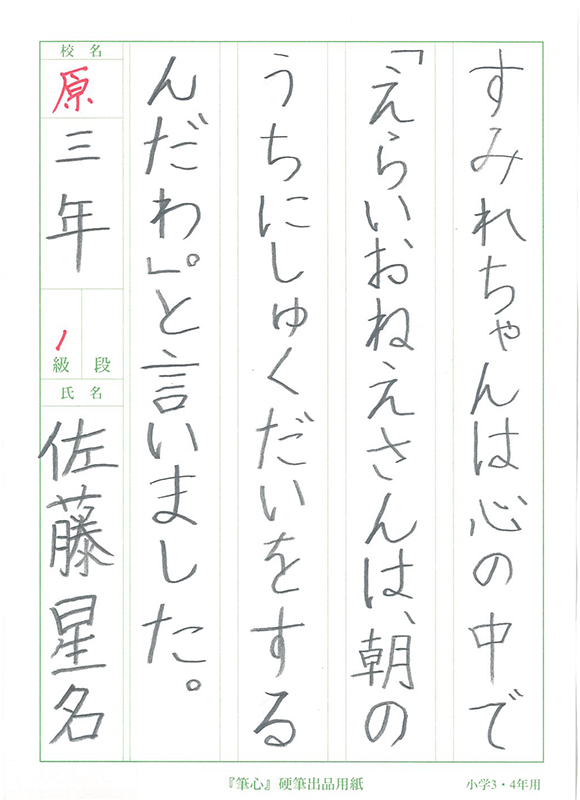 すみれちゃんは心の中で
「えらいおねえさんは、朝の
うちにしゅくだいをする
んだわ。」と言いました。
校名
原
三年
段
級
1
氏名
佐藤星名
『筆心』硬筆出品用紙
小学3・4年用